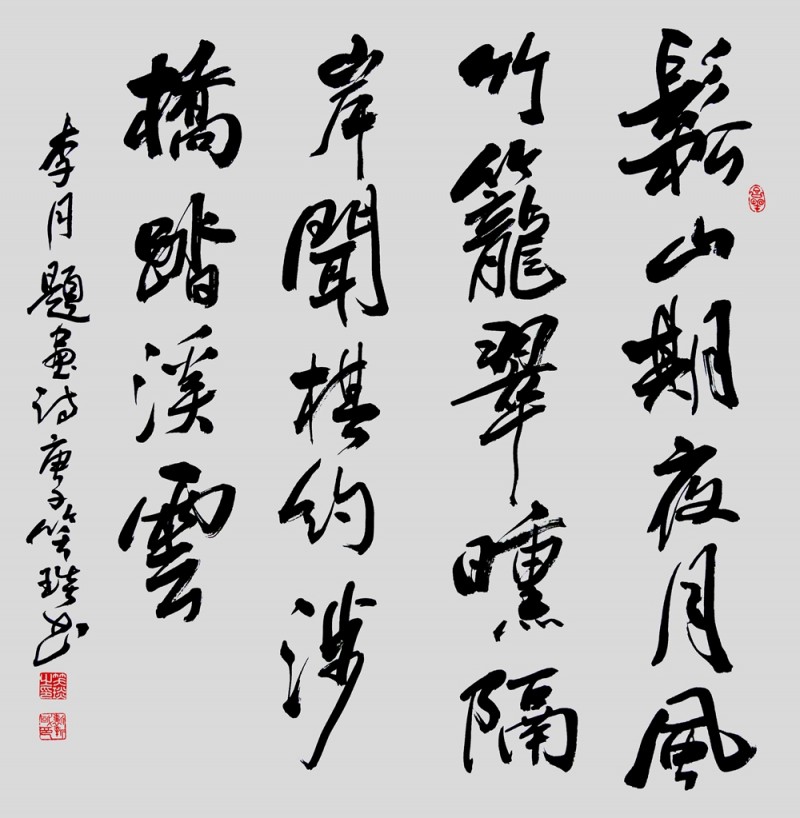 鬆山期夜月風
竹籠翠曛隔
岸聞棋約涉
橋踏溪雲
李月題畫诗庚子笑书